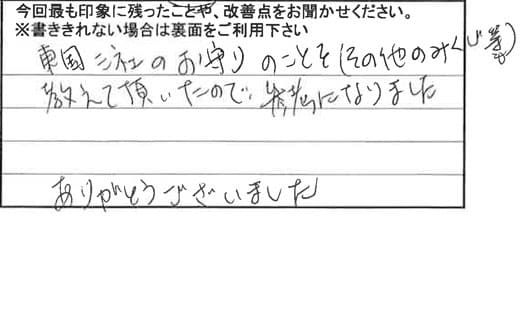 今回最も印象に残ったことや、改善点をお聞かせください。
※書ききれない場合は裏面をご利用下さい
東国三社のお守りのことを(その他のみくじ等も)
教えて頂いたので、参考になりました
ありがとうございました